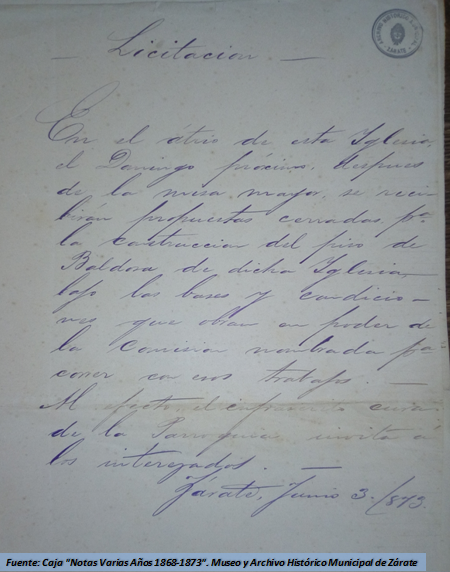 ARCHIVO HISTORICO
ZÁRATE
— Licitacion —
En el átrio de esta Iglesia,
el Domingo próximo, despues
de la misa mayor, se reci
birán propuestas cerradas, pa
la construccion del piso de
Baldosa de dicha Iglesia,
bajo las bases y condicio-
nes que obran en poder de
la Comision nombrada pa
correr con esos trabajos. —
Al efecto, el infrascrito cura
de la Parroquia invita á
los interesados. —
Zárate, Junio 3./873.
Fuente: Caja "Notas Varias Años 1868-1873". Museo y Archivo Histórico Municipal de Zárate